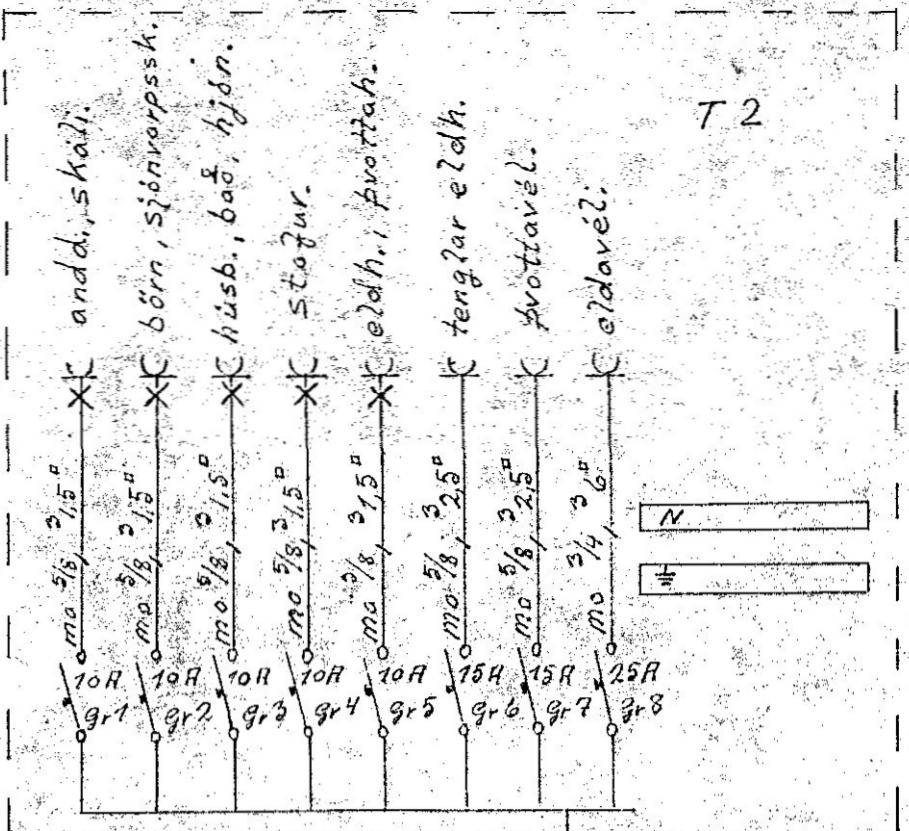 T 2
andd., skáli.
börn, sjónvarpssk.
húsb., bað & hjón.
stofur.
eldh., þvottah.
tenglar eldh.
þvottavél.
eldavél.
mo 5/8, 3 1,5 □
mo 5/8, 3 1,5 □
mo 5/8, 3 1,5 □
mo 5/8, 3 1,5 □
mo 5/8, 3 1,5 □
mo 5/8, 3 2,5 □
mo 5/8, 3 2,5 □
mo 3/4, 3 6 □
N
10A
10A
10A
10A
10A
15A
15A
25A
gr1
gr2
gr3
gr4
gr5
gr6
gr7
gr8